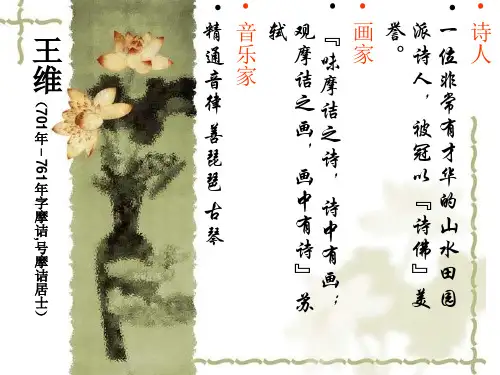 • 诗人
• 一位非常有才华的山水田园
派诗人，被冠以『诗佛』美
誉。
• 画家
• 『味摩诘之诗，诗中有画；
观摩诘之画，画中有诗』苏
轼
• 音乐家
• 精通音律 善琵琶 古琴
王维（701年－761年字摩诘,号摩诘居士）